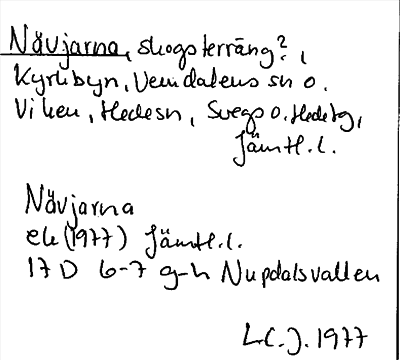 Nävjarna, skogsterräng?,
Kyrkbyn, Vemdalens sn o.
Viken, Hedesn, Svegs o. Hede tg,
Jämtl. l.
Nävjarna
ek (1977) Jämtl. l.
17 D 6-7 g-h Nupdalsvallen
L C. J. 1977